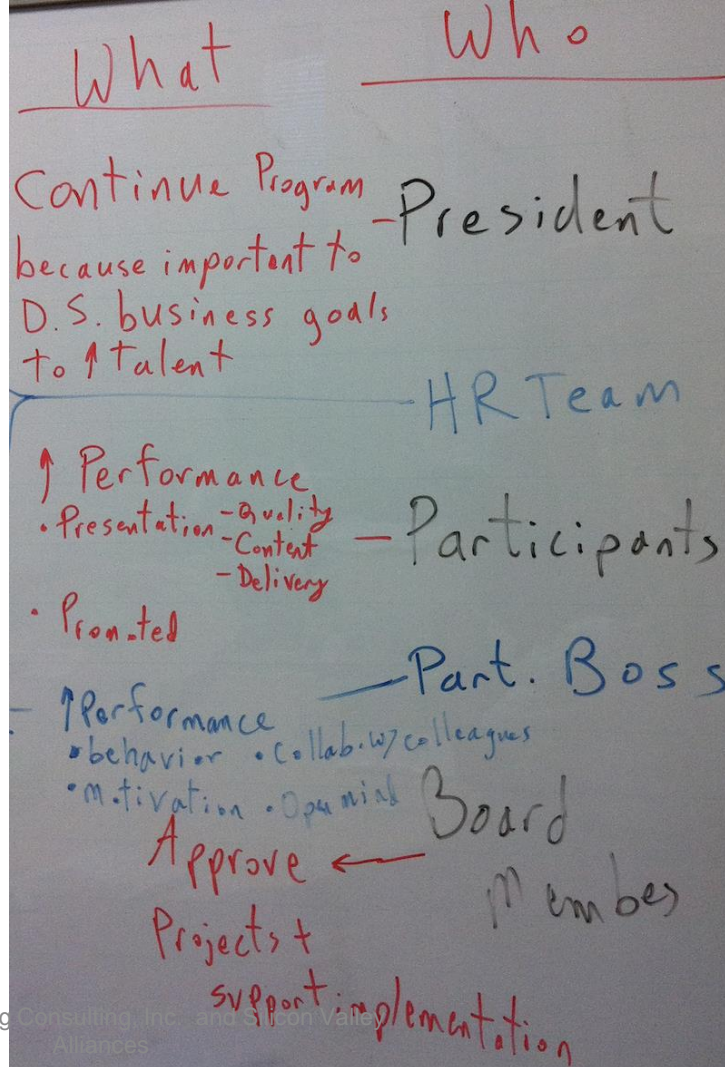 What Who
Continue Program - President
because important to
D.S. business goals
to ↑ talent
- HR Team
↑ Performance
• Presentation - Quality
- Content
- Delivery
- Participants
• Promoted
- Part. Boss
- ↑ Performance
• behavior • Collab. w/ colleagues
• motivation • Open mind
Board
Approve ←
Member
Projects +
support implementation
g Consulting, Inc., and Silicon Valley
Alliances